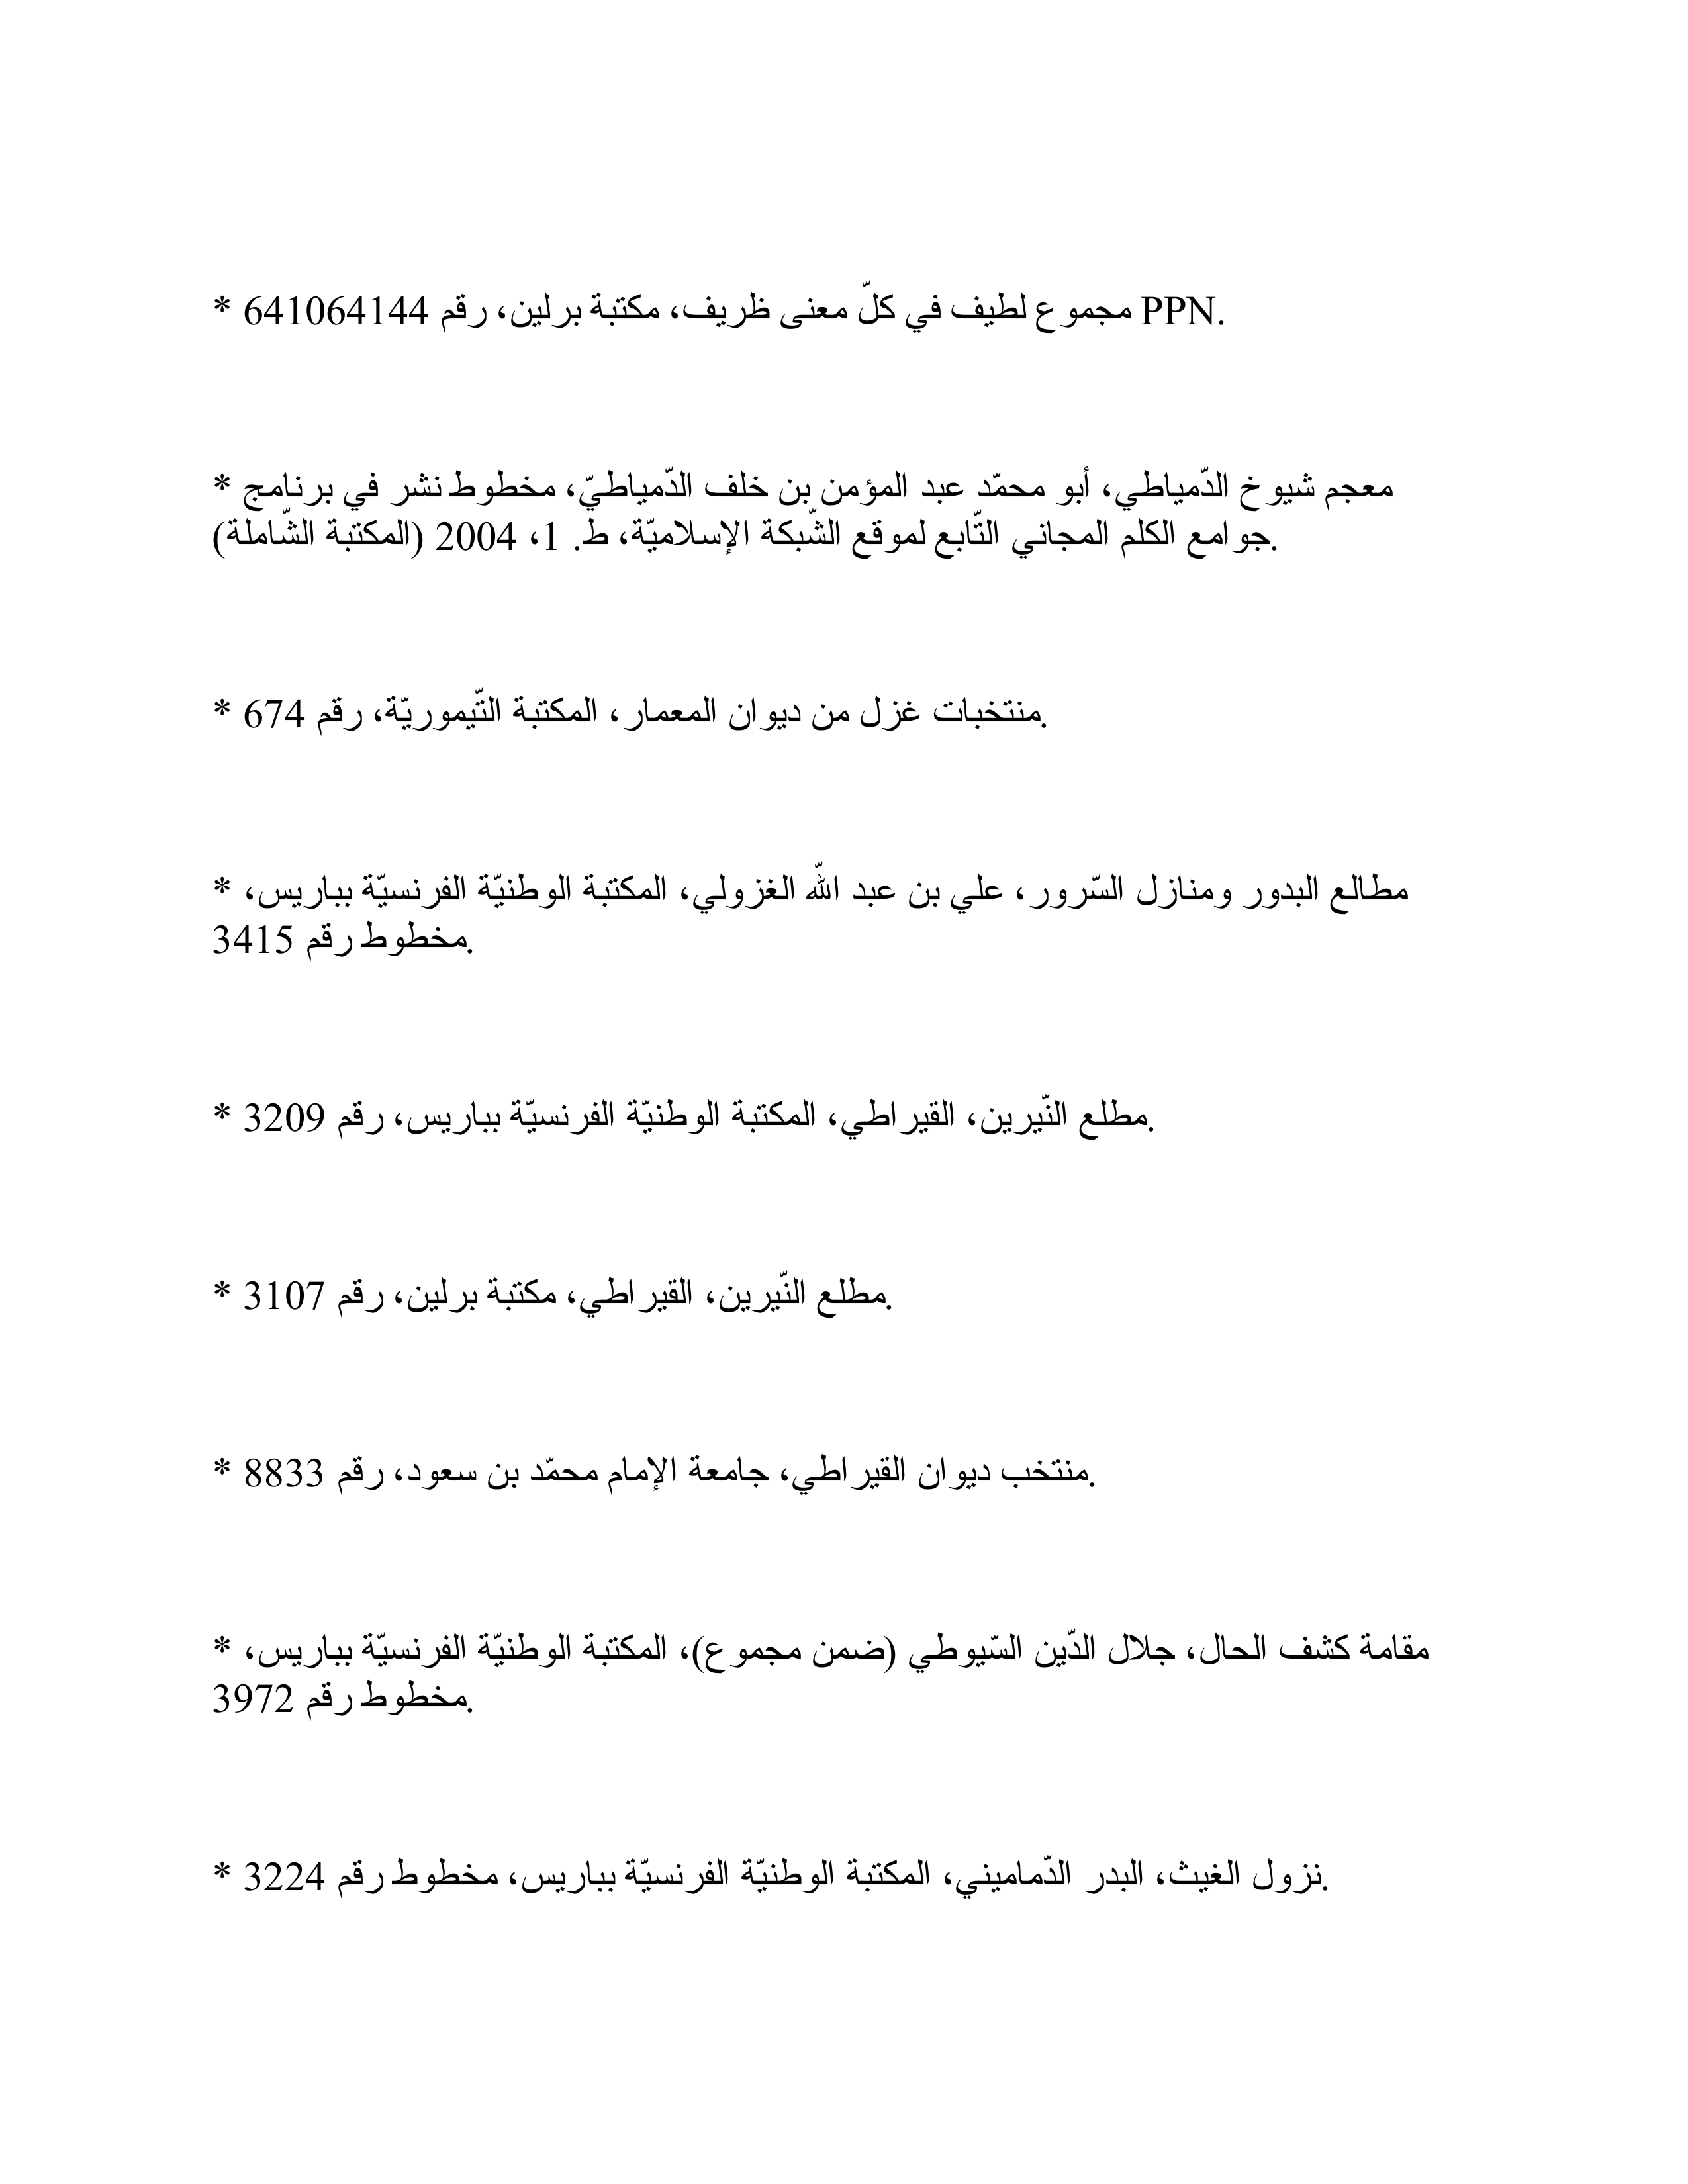 * مجموع لطيف في كلّ معنى ظريف، مكتبة برلين، رقم 641064144 PPN.
* معجم شيوخ الدّمياطي، أبو محمّد عبد المؤمن بن خلف الدّمياطيّ، مخطوط نشر في برنامج
جوامع الكلم المجاني التّابع لموقع الشّبكة الإسلاميّة، ط. 1، 2004 (المكتبة الشّاملة).
* منتخبات غزل من ديوان المعمار، المكتبة التّيموريّة، رقم 674.
* مطالع البدور ومنازل السّرور، علي بن عبد الله الغزولي، المكتبة الوطنيّة الفرنسيّة بباريس،
مخطوط رقم 3415.
* مطلع النّيرين، القيراطي، المكتبة الوطنيّة الفرنسيّة بباريس، رقم 3209.
* مطلع النّيرين، القيراطي، مكتبة برلين، رقم 3107.
* منتخب ديوان القيراطي، جامعة الإمام محمّد بن سعود، رقم 8833.
* مقامة كشف الحال، جلال الدّين السّيوطي (ضمن مجموع)، المكتبة الوطنيّة الفرنسيّة بباريس،
مخطوط رقم 3972.
* نزول الغيث، البدر الدّماميني، المكتبة الوطنيّة الفرنسيّة بباريس، مخطوط رقم 3224.